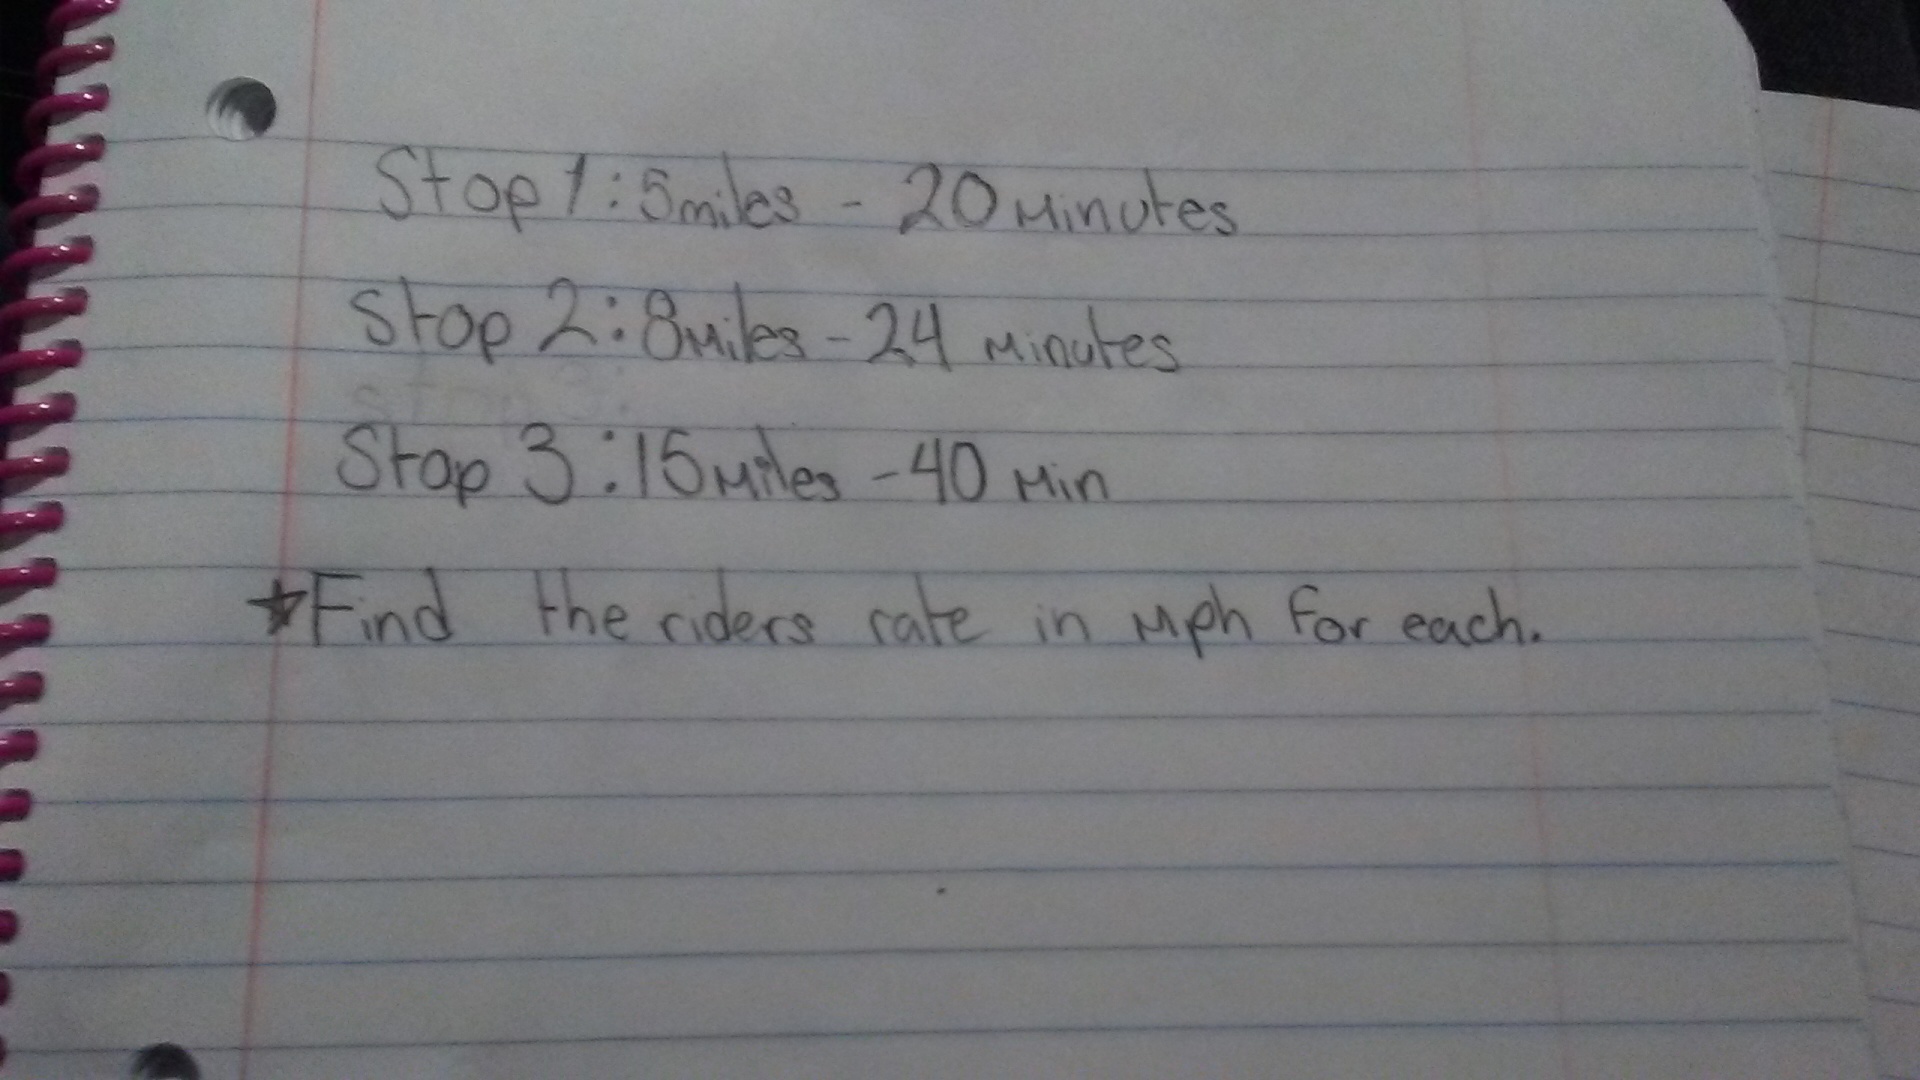 Stop 1: 5 miles - 20 minutes
Stop 2: 8 miles - 24 minutes
Stop 3: 15 miles - 40 min
★Find the riders rate in mph for each.